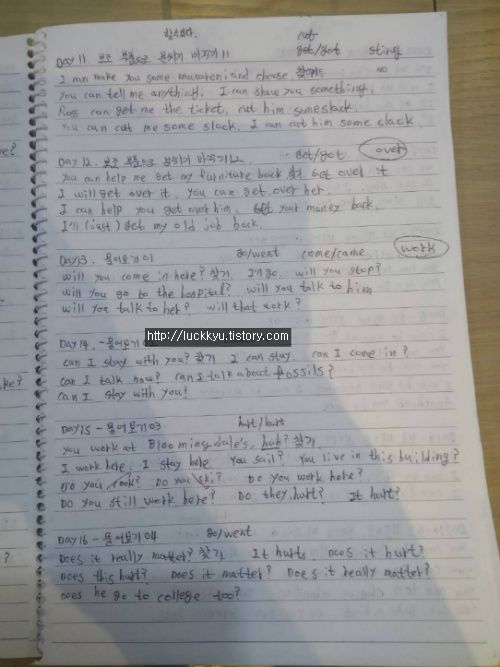 cut
get/got
DAY 11 보조 부품으로 묻히기 바꾸기 11
I can make you some macaroni and cheese. 찾기
NO
You can tell me anything. I can show you something.
Ross can get me the ticket. cut him some slack.
You can cut me some slack. I can cut him some slack
DAY 12. 보조 부품으로 바꾸기
get/got
over
You can help me get my furniture back 찾기 Get over it
I will get over it. You can get over her.
I can help you get over him. Get your money back.
I'll (just) get my old job back.
DAY 13. 물어보기 01
go/went
come/came
work
will you come in here? 찾기 I'll go. will you stop?
will you go to the hospital? will you talk to him
will you talk to her? will that work?
http://luckkyu.tistory.com
DAY 14. - 물어보기 02
can I stay with you? 찾기 I can stay. can I come in?
Can I talk now? can I talk about fossils?
Can I stay with you?
DAY 15 - 물어보기 03
hurt/hurt
You work at Bloomingdale's, huh? 찾기
I work here. I stay here You sail? You live in this building?
Do you cook? Do you ski? Do you work here?
Do you still work here? Do they hurt? It hurt?
DAY 16 - 물어보기 04
go/went
Does it really matter? 찾기 It hurts. Does it hurt?
Does this hurt? Does it matter? Does it really matter?
Does he go to college too?